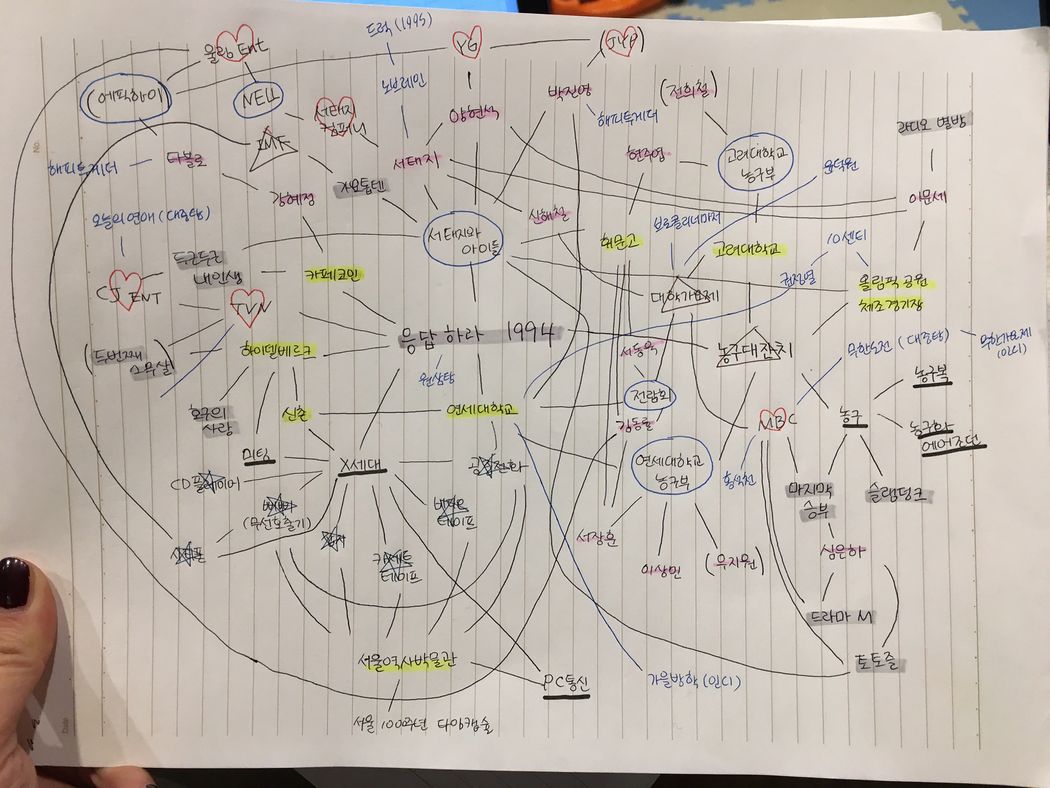 드럭 (1995)
울림 Ent
YG
(JYP)
(에픽하이)
NELL
노브레인
박진영
(전희철)
서태지
컴퍼니
양현석
해피투게더
라디오 별밤
IMF
현주엽
고려대학교
농구부
윤덕원
해피투게더
타블로
서태지
자우림텐
강혜정
신해철
이문세
오늘의 연애 (대중탕)
서태지와
아이들
휘문고
브로콜리너마저
고려대학교
10센티
두근두근
내인생
카페코인
CJ ENT
대학가요제
권정열
올림픽 공원
체조경기장
TVN
응답하라 1994
(두번째
스무살)
하이델베르크
서동욱
농구대잔치
무한도전 (대중탕)
무한가요제
(인디)
전람회
농구복
호구의
사랑
신촌
연세대학교
김동률
MBC
농구
농구화
에어조단
미팅
X세대
공중전화
연세대학교
농구부
홍석천
마지막
승부
슬램덩크
CD플레이어
(무선호출기)
테이프
카세트
테이프
서장훈
이상민
(우지원)
심은하
드라마 M
서울역사박물관
PC통신
가을방학 (인디)
토토즐
서울 100주년 타임캡슐